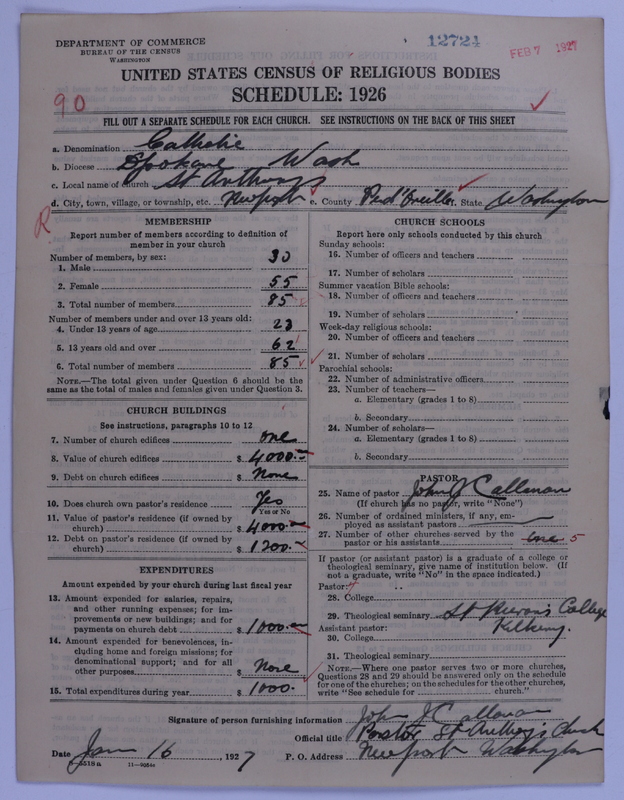 DEPARTMENT OF COMMERCE
BUREAU OF THE CENSUS
WASHINGTON
12724
FEB 7 1927
UNITED STATES CENSUS OF RELIGIOUS BODIES
SCHEDULE: 1926
90
FILL OUT A SEPARATE SCHEDULE FOR EACH CHURCH. SEE INSTRUCTIONS ON THE BACK OF THIS SHEET
a. Denomination Catholic
b. Diocese Spokane Wash
c. Local name of church St Anthonys
d. City, town, village, or township, etc. Newport e. County Pend'Oreille f. State Washington
R
MEMBERSHIP
Report number of members according to definition of
member in your church
Number of members, by sex:
1. Male 30
2. Female 55
3. Total number of members 85
Number of members under and over 13 years old:
4. Under 13 years of age 23
5. 13 years old and over 62
6. Total number of members 85
NOTE.—The total given under Question 6 should be
same as the total of males and females given under Question 3.
CHURCH BUILDINGS
See instructions, paragraphs 10 to 12
7. Number of church edifices one
8. Value of church edifices $ 4000.–
9. Debt on church edifices $ None
10. Does church own pastor's residence Yes
Yes or No
11. Value of pastor's residence (if owned by
church) $ 4000.–
12. Debt on pastor's residence (if owned by
church) $ 1200.
EXPENDITURES
Amount expended by your church during last fiscal year
13. Amount expended for salaries, repairs,
and other running expenses; for im-
provements or new buildings; and for
payments on church debt $ 1000.–
14. Amount expended for benevolences, in-
cluding home and foreign missions; for
denominational support; and for all
other purposes $ None
15. Total expenditures during year $ 1000.
CHURCH SCHOOLS
Report here only schools conducted by this church
Sunday schools:
16. Number of officers and teachers
17. Number of scholars
Summer vacation Bible schools:
18. Number of officers and teachers
19. Number of scholars
Week-day religious schools:
20. Number of officers and teachers
21. Number of scholars
Parochial schools:
22. Number of administrative officers
23. Number of teachers—
a. Elementary (grades 1 to 8)
b. Secondary
24. Number of scholars—
a. Elementary (grades 1 to 8)
b. Secondary
PASTOR
25. Name of pastor John J Callanan
(If church has no pastor, write "None")
26. Number of ordained ministers, if any, em-
ployed as assistant pastors
27. Number of other churches served by the
pastor or his assistants 5
If pastor (or assistant pastor) is a graduate of a college or
theological seminary, give name of institution below. (If
not a graduate, write "No" in the space indicated.)
Pastor:
28. College
29. Theological seminary St Kieran's College
Assistant pastor: Kilkenny.
30. College
31. Theological seminary
NOTE.—Where one pastor serves two or more churches,
Questions 28 and 29 should be answered only on the schedule
for one of the churches; on the schedules for the other churches,
write "See schedule for church."
Signature of person furnishing information John J Callanan
Official title Pastor St Anthony's Church
Date Jan 16, 1927 P. O. Address Newport Washington
11—9054